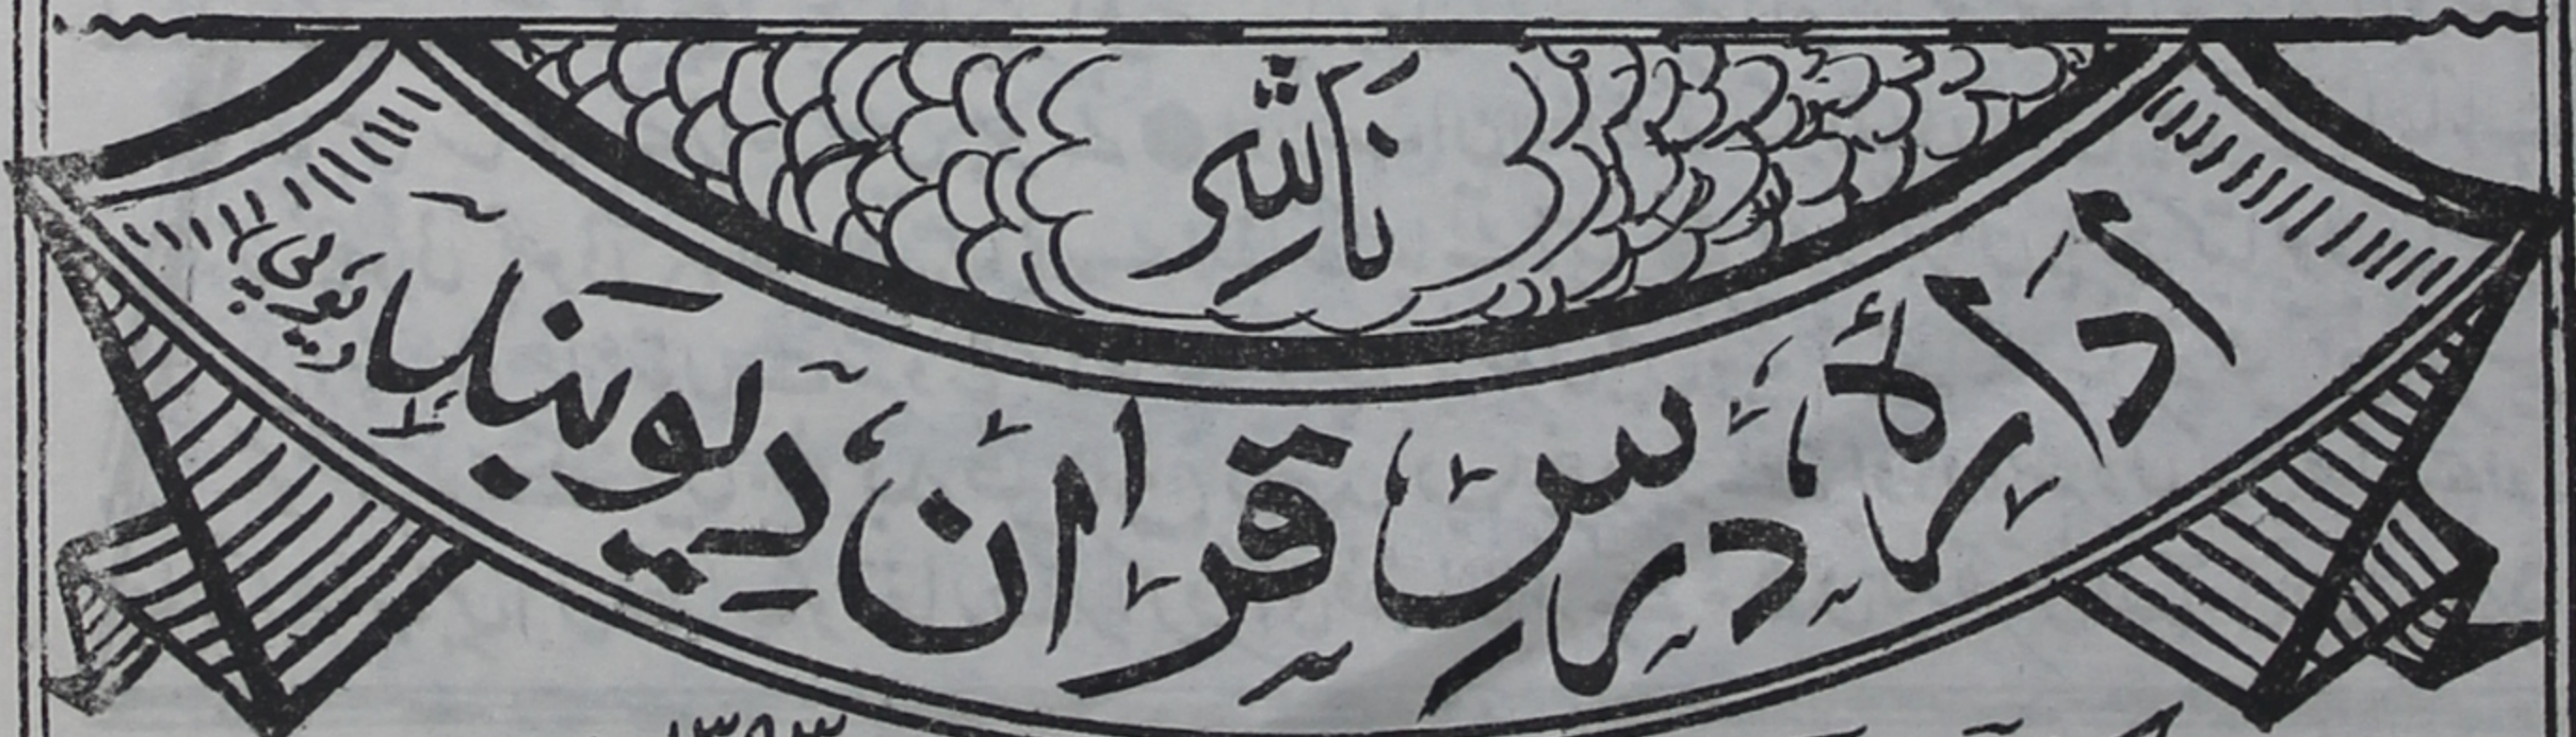 نَاشِر
اِدَارَهٔ دَرسِ قُرآن دِیوبَند (یوپی)